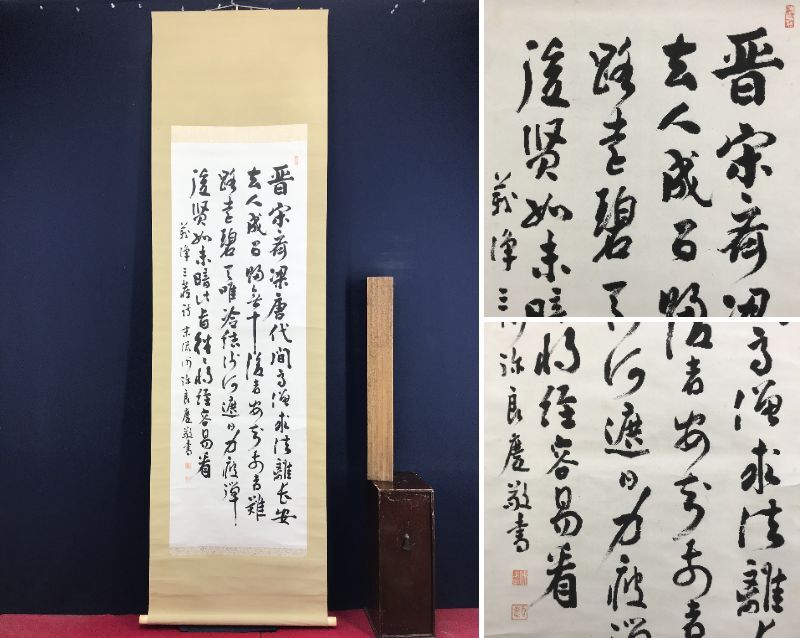 晋宋斉梁唐代間高僧求法離長安
去人成百歸無十後者安知前者難
路遠碧天唯冷結沙河遮日力疲殫
後賢如未暗此旨往々将經容易看
義浄三蔵詩 末流沙弥良慶敬書
晋宋斉梁
去人成百歸
路遠碧天
後賢如未暗
義浄三
高僧求法離長
後者安知前者
河遮日力疲殫
将經容易看
弥良慶敬書